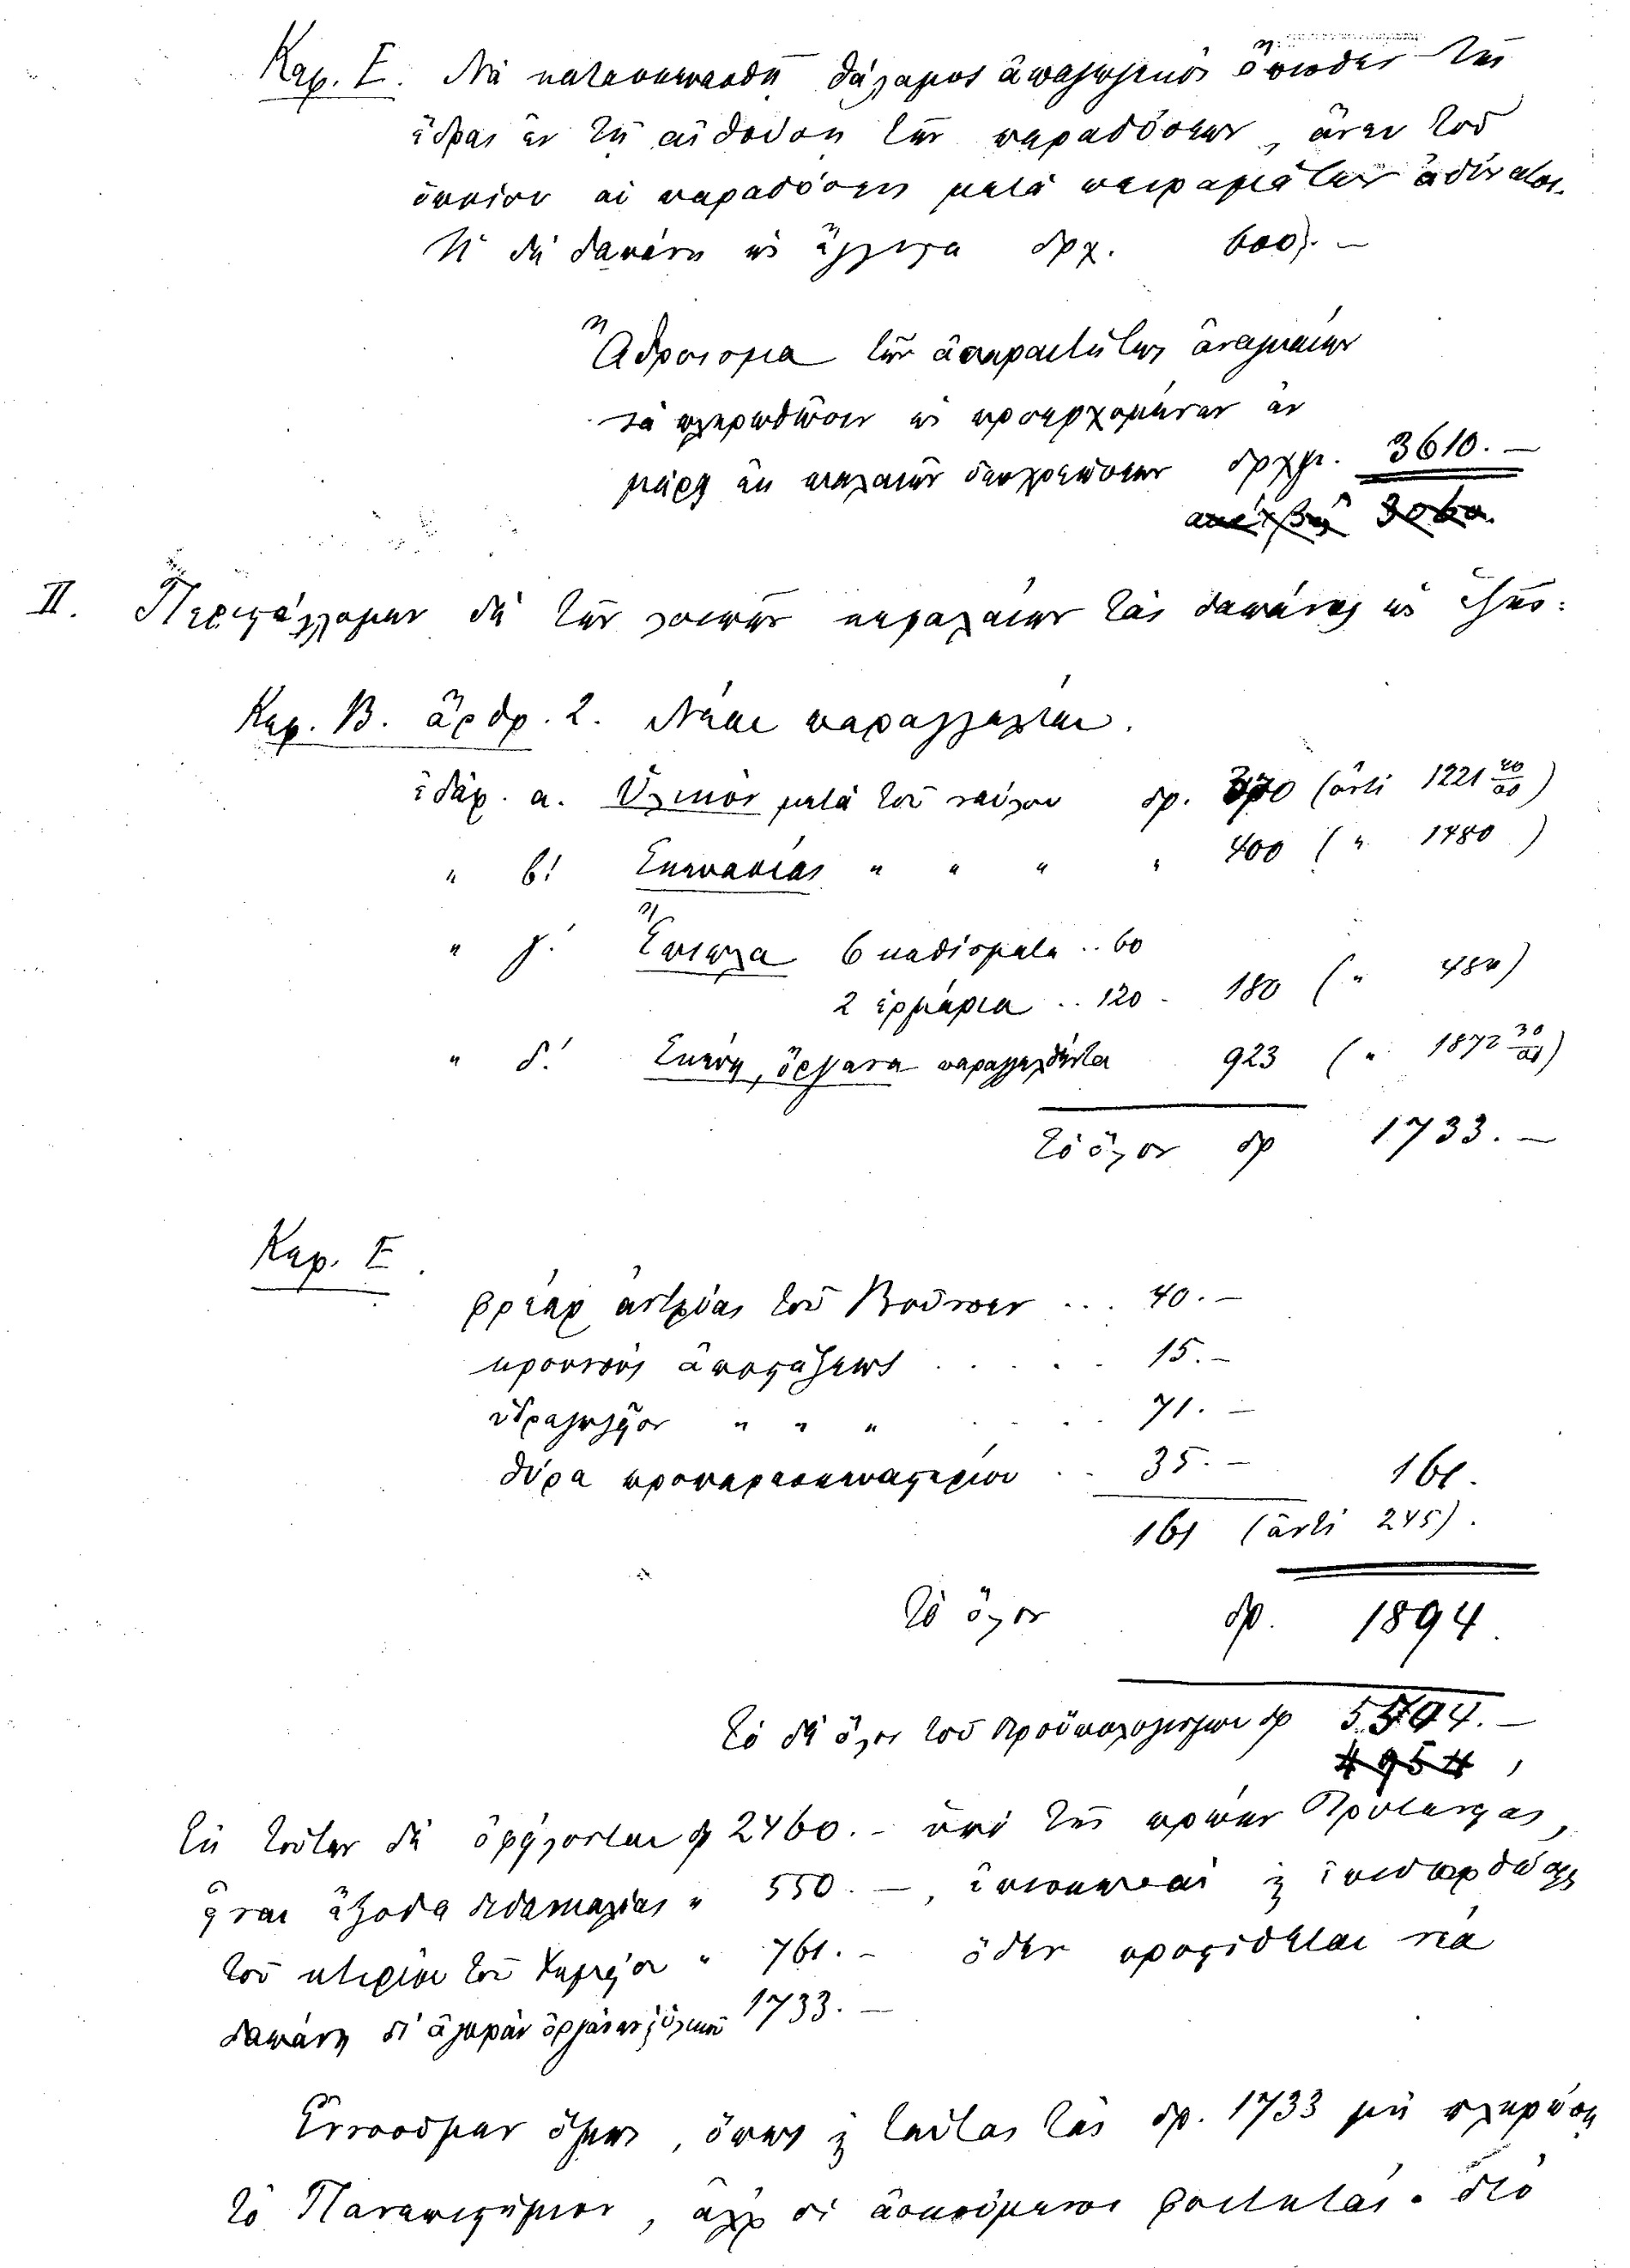 Κεφ. Ε. Νὰ κατασκευασθῇ θάλαμος ἀπαγωγικὸς ὄπισθεν τῆς
ἕδρας ἐν τῇ αἰθούσῃ τῶν παραδόσεων, ἄνευ τοῦ
ὁποίου αἱ παραδόσεις μετὰ πειραμάτων ἀδύνατοι.
Ἡ δὲ δαπάνη ὡς ἔγγιστα δρχ. 600. —
Ἄθροισμα τῶν ἀπαραιτήτως ἀναγκαίων
νὰ πληρωθῶσιν ὡς προερχομένων ἐν
μέρει ἐκ παλαιῶν ὑποχρεώσεων δρχμ. 3610. —
3060.
II. Περιστέλλομεν δὲ τῶν λοιπῶν κεφαλαίων τὰς δαπάνας ὡς ἑξῆς:
Κεφ. Β. ἄρθρ. 2. Νέαι παραγγελίαι.
ἐδάφ. α. Ὑλικὸν μετὰ τοῦ ναύλου δρ. (ἀντὶ 1221 20/00)
" β! Συσκευασίας " " " " 400 ( " 1480 )
" γ! Ἔπιπλα 6 καθίσματα .. 60
2 ἑρμάρια .. 120 - 180 ( " 480)
" δ! Σκεύη, ὄργανα παραγγελθέντα 923 ( " 1872 30/00)
τὸ ὅλον δρ 1733. —
Κεφ. Ε.
φρέαρ ἀντλίας τοῦ Βούνσεν ... 40. —
κρουνὸς ἀποστάξεως . . . . . 15. —
ὑδραγωγεῖον " " " . . . 71. —
θύρα προπαρασκευαστηρίου .. 35. — 161.
161 (ἀντὶ 245).
τὸ ὅλον δρ. 1894.
τὸ δὲ ὅλον τοῦ προϋπολογισμοῦ δρ 5504. —
4954
Ἐκ τούτων δὲ ὀφείλονται δρ 2460. — ὑπὸ τῆς πρώην Πρυτανείας,
εἶναι ἔξοδα διδασκαλίας " 550. —, ἐπισκευαὶ καὶ ἐπιδιορθώσεις
τοῦ κτιρίου τοῦ Χημείου " 761. — ὅθεν προστίθεται νέα
δαπάνη δι' ἀγορὰν ὀργάνων καὶ ὑλικοῦ 1733. —
Ἐννοοῦμεν ὅμως, ὅπως καὶ ταύτας τὰς δρ. 1733 μὴ πληρώσῃ
τὸ Πανεπιστήμιον, ἀλλ' οἱ ἀσκούμενοι φοιτηταί. διὸ